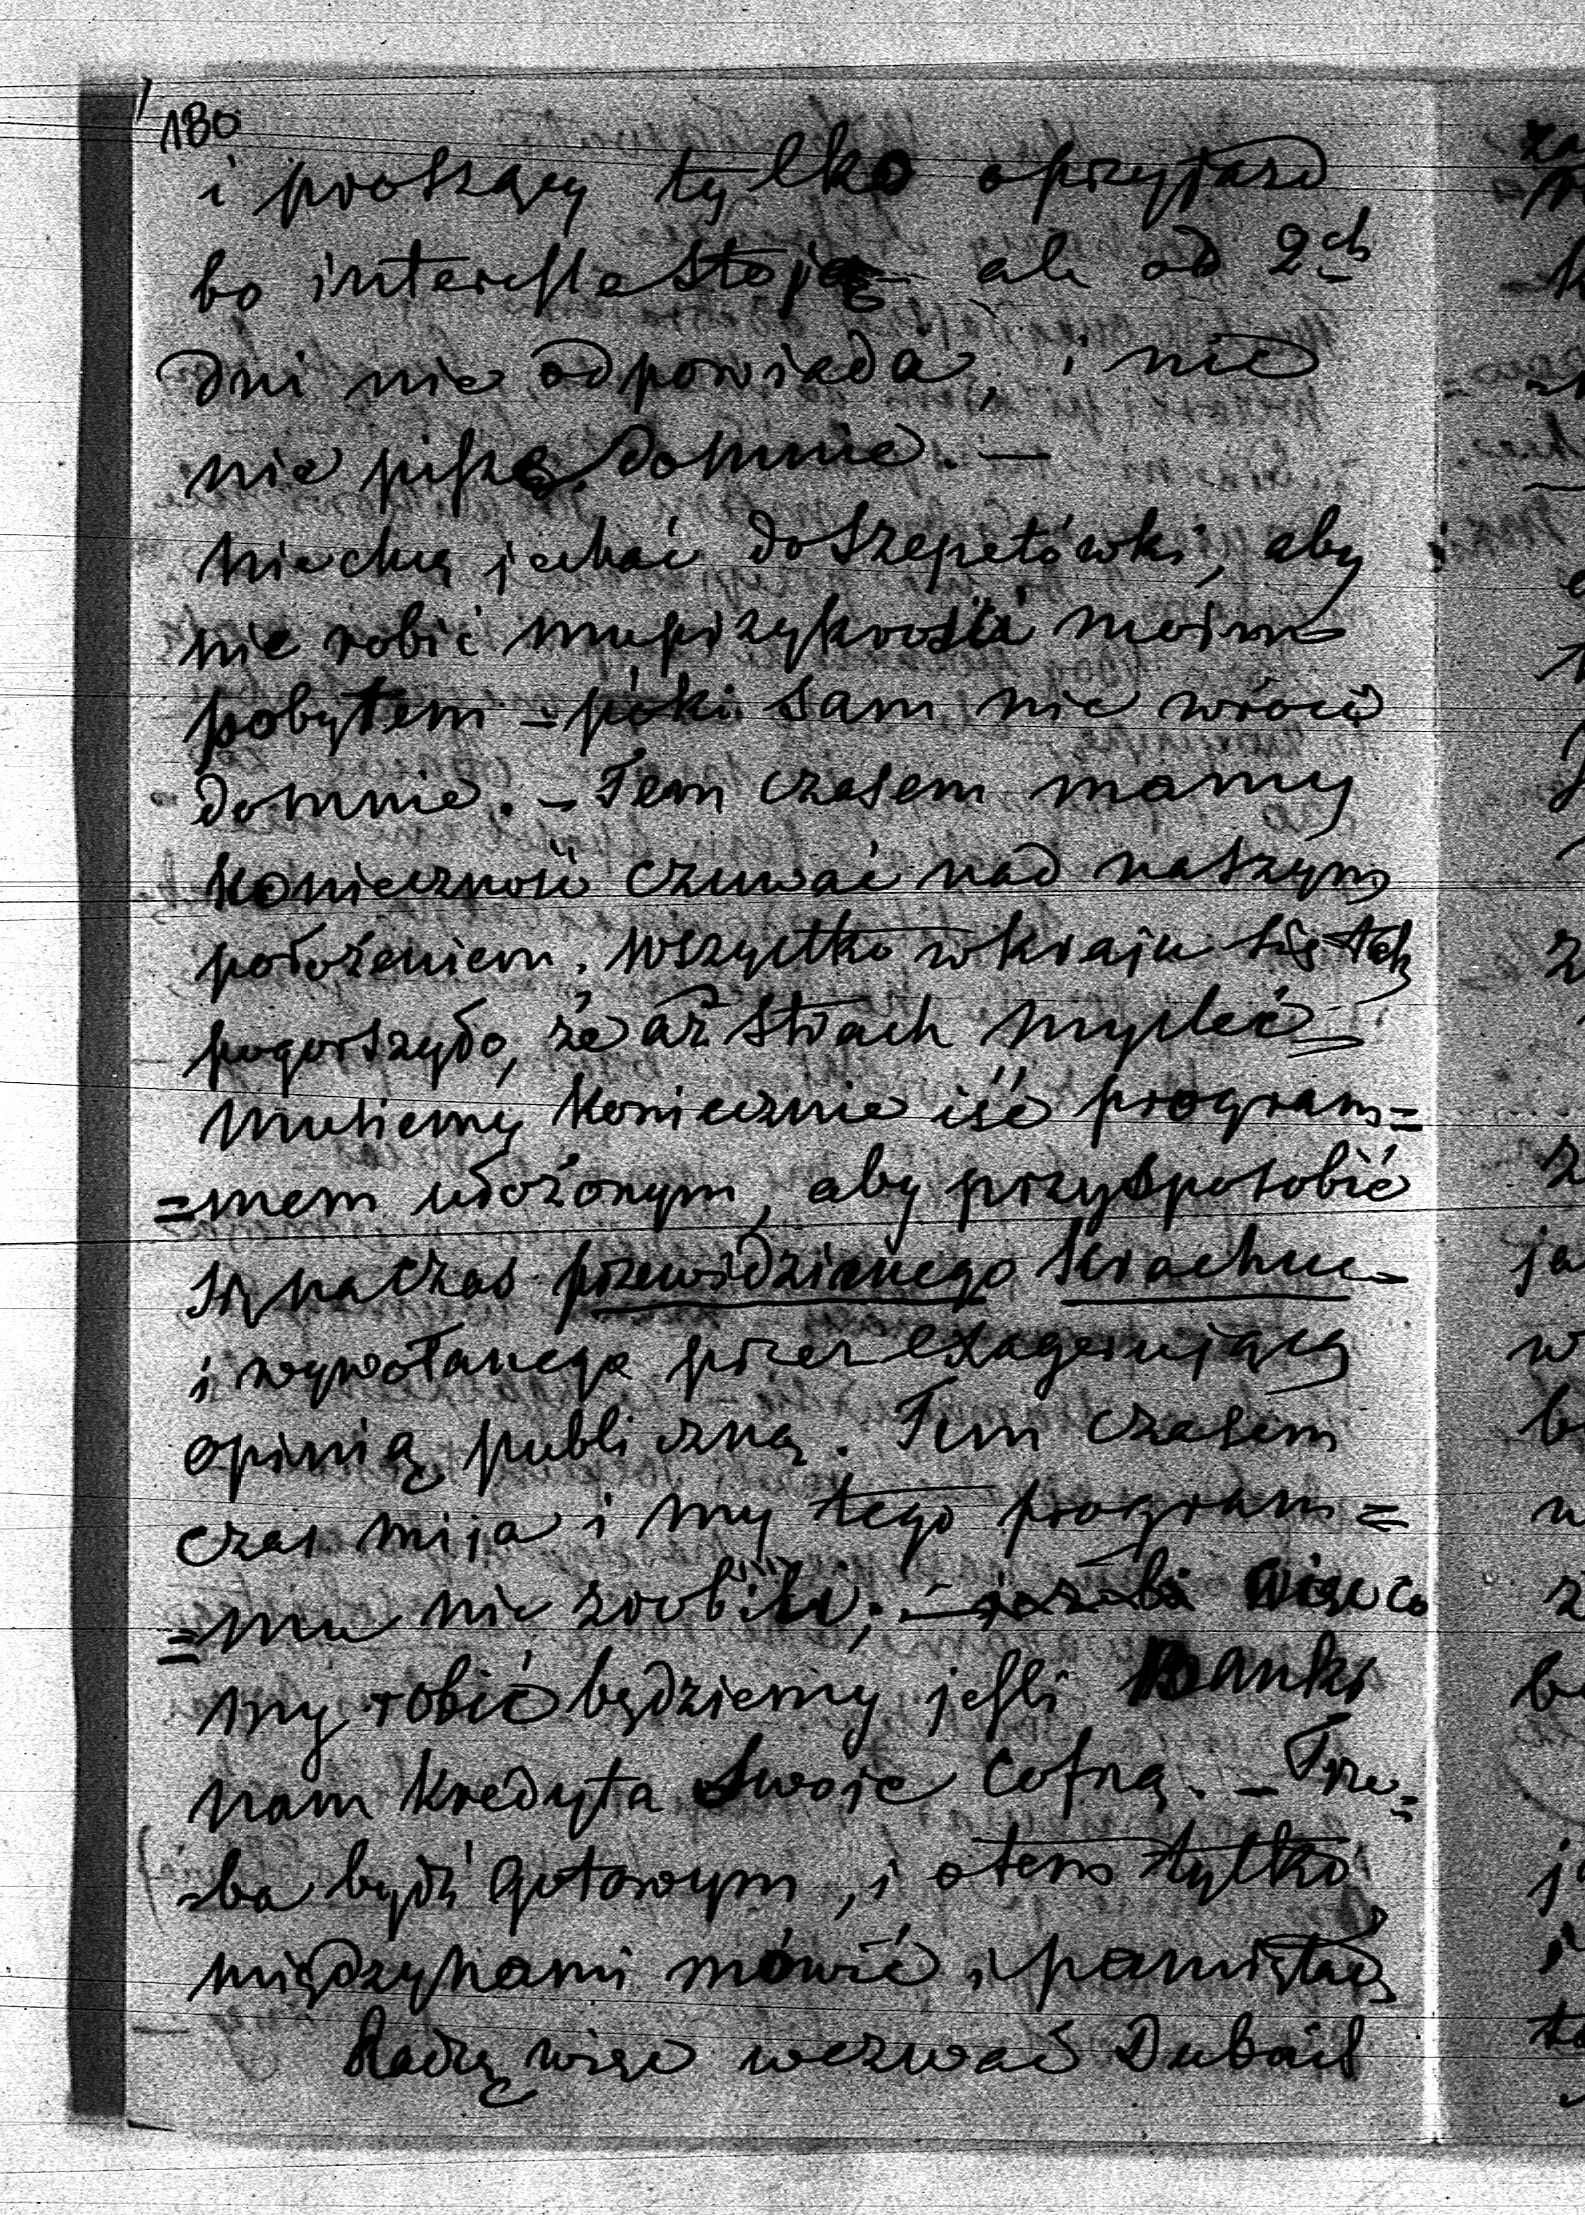 180
i proszący tylko o przyjazd
bo interessa stoją – ale od 2ch
dni nie odpowiada, i nic
nie piszę do mnie. —
Nie chcę jechać do Szepetówki, aby
nie robić mu przykrości moim
pobytem – póki sam nie wróci
do mnie. – Tem czasem mamy
konieczność czuwać nad naszym
położeniem. Wszystko w kraju się tak
pogorszyło, że aż strach myśleć –
Musiemy koniecznie iść program=
=mem ułożonym, aby przysposobić
się na czas przewidzianego
i wywołanego przez exagerującą
opinią publiczną. Tem czasem
czas mija i my tego program=
=mu nie zrobili; – więc co
my robić będziemy jeśli Banki
nam kredyta swoje cofną. – Trze=
=ba bydź gotowym, i o tem tylko
między nami mówić i pamiętać
Radzę więc wezwać Dubois